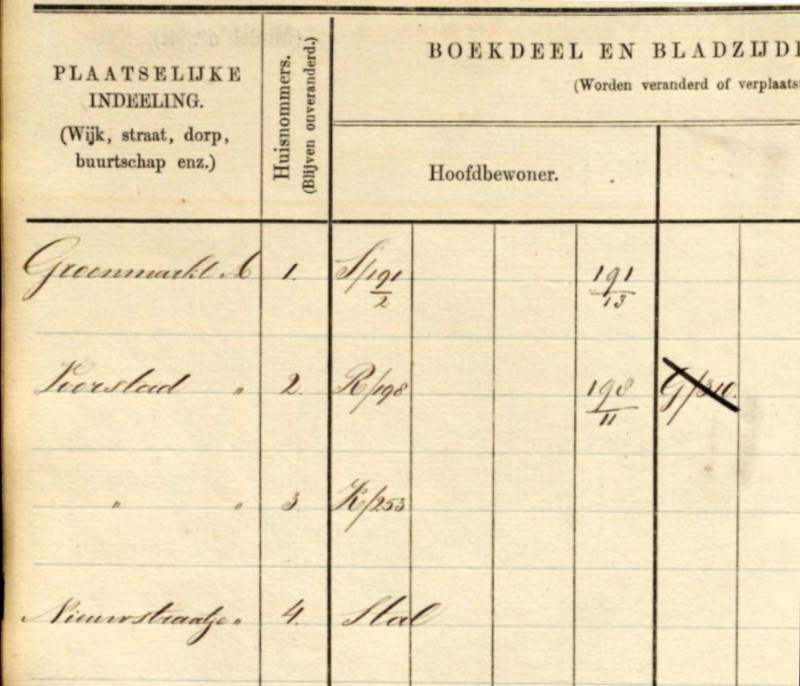 PLAATSELIJKE
INDEELING.
(Wijk, straat, dorp,
buurtschap enz.)
Huisnommers.
(Blijven onveranderd.)
BOEKDEEL EN BLADZIJDE
(Worden veranderd of verplaats
Hoofdbewoner.
Groenmarkt A 1. S/191/2 191/13
Voorstad " 2. R/198 198/11 G/310.
" " 3 K/253
Nieuwstraatje " 4. Stal